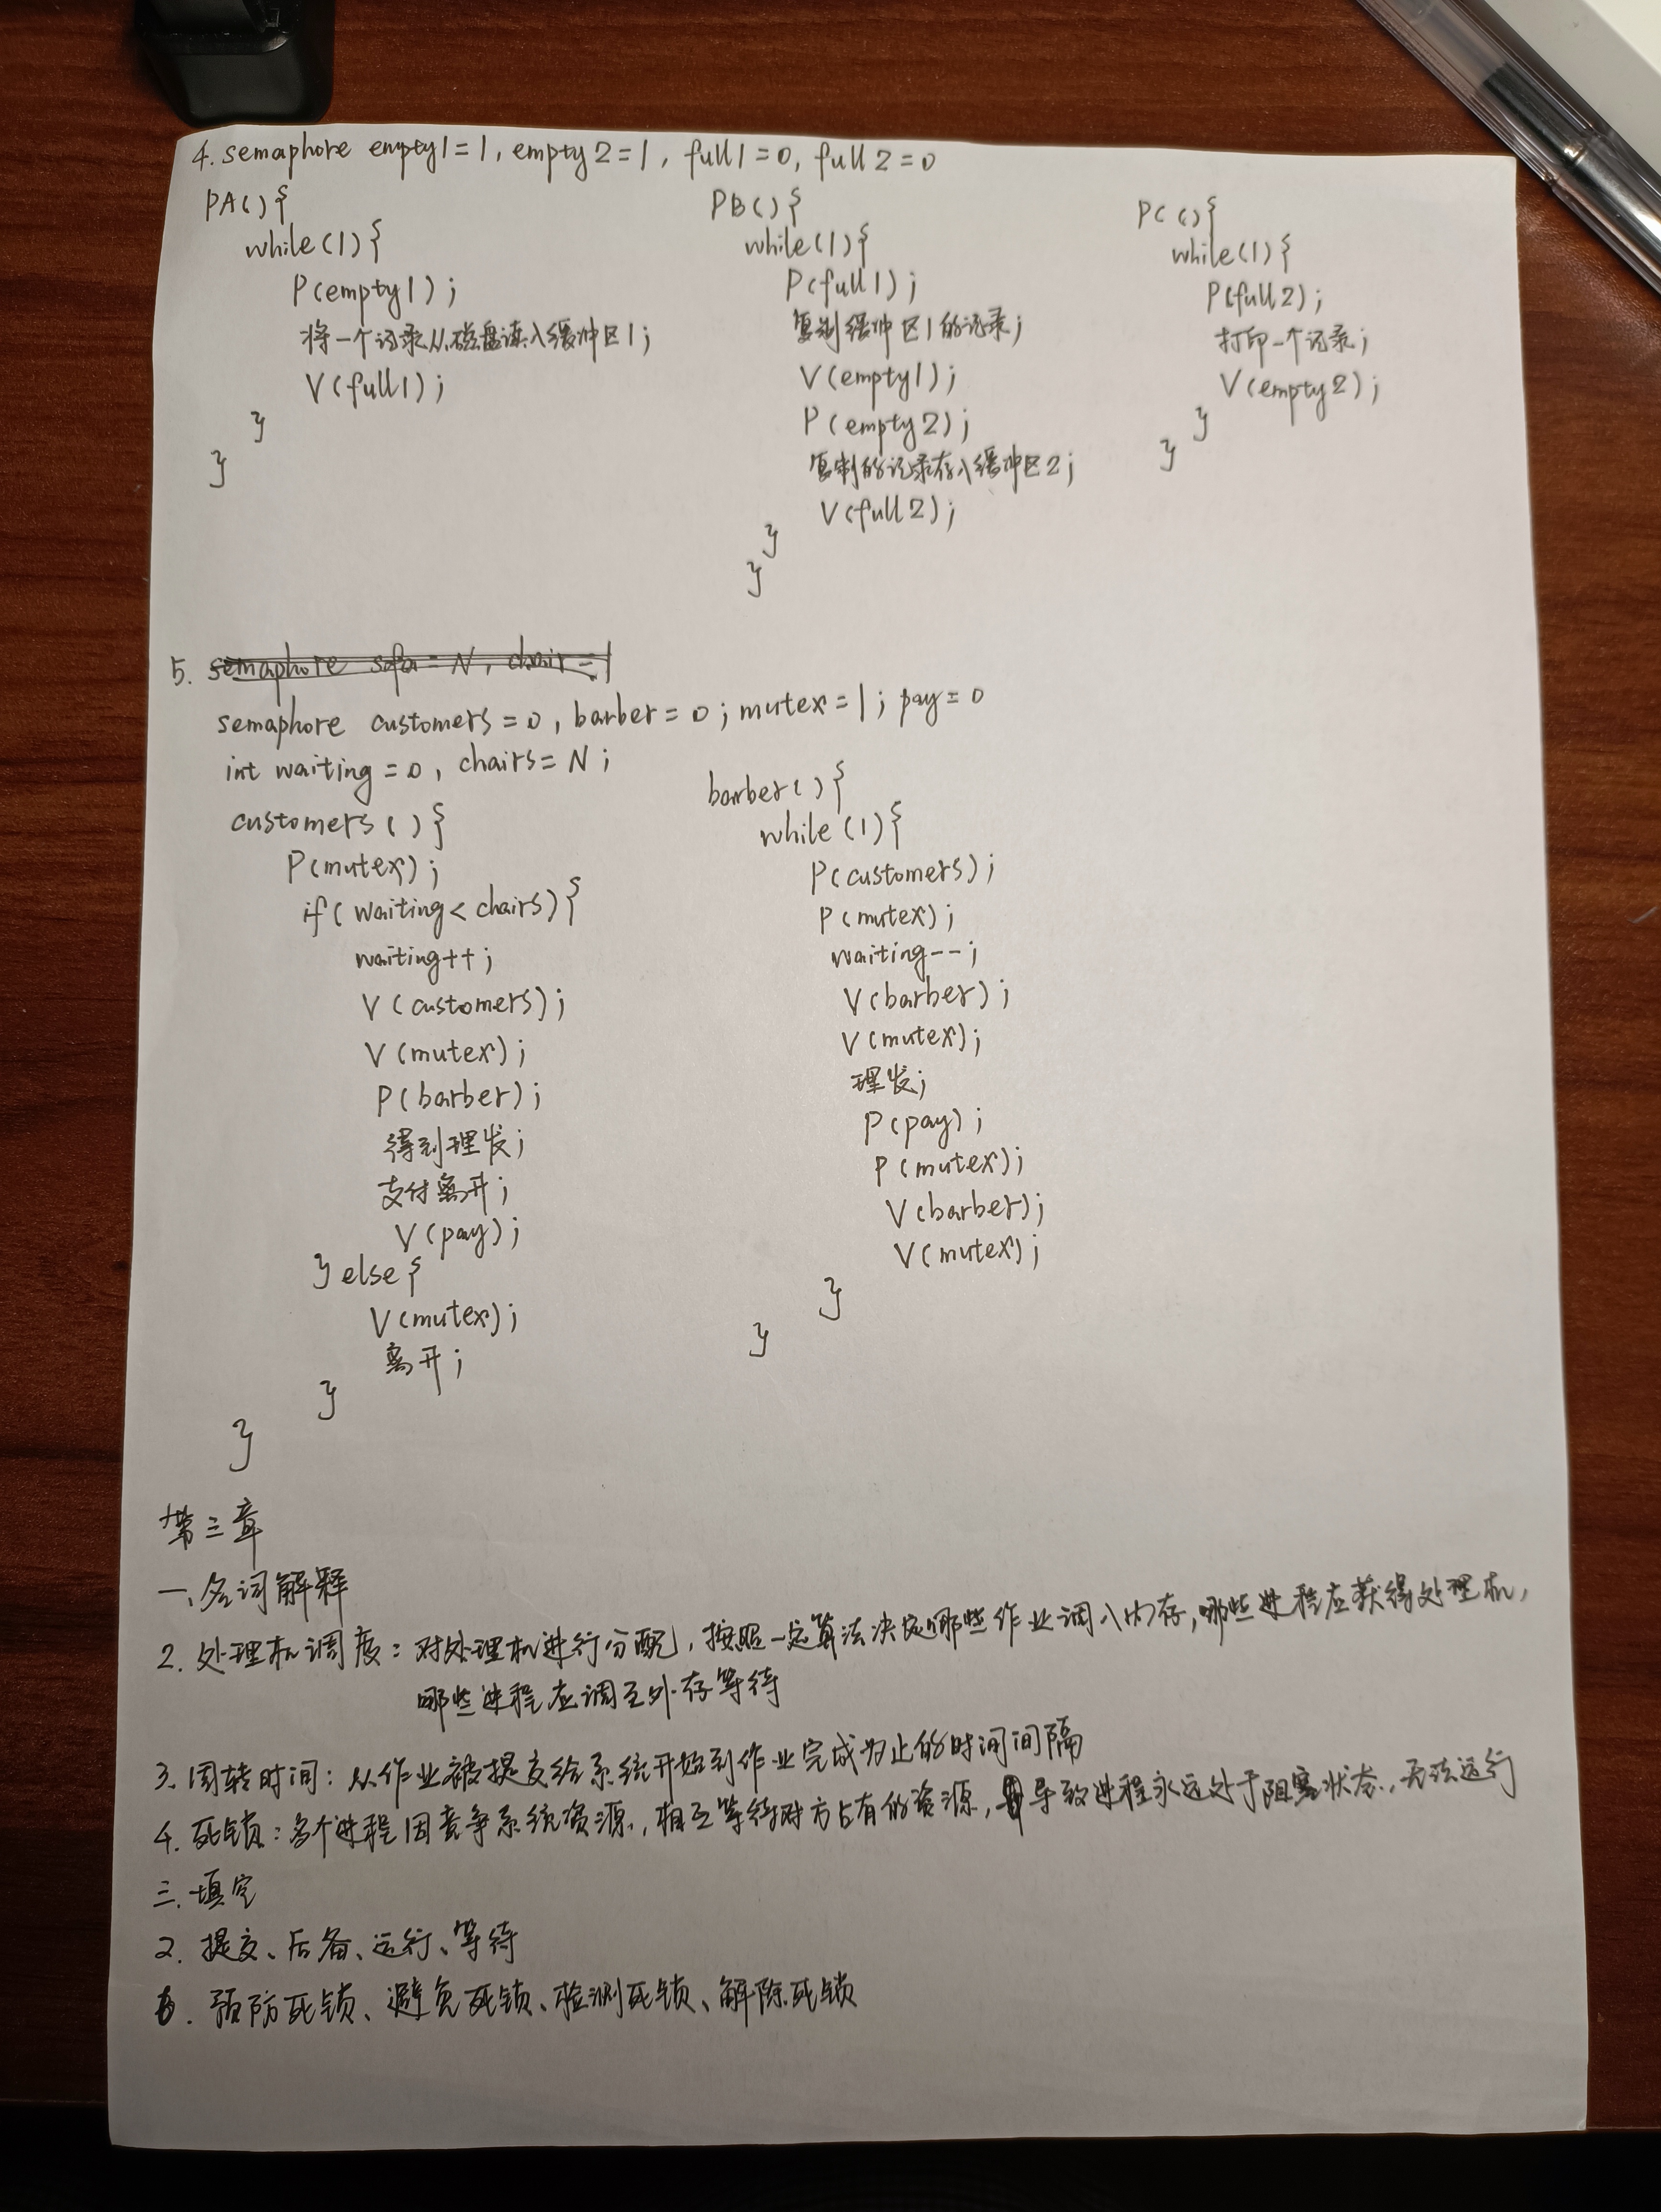 4. semaphore empty1=1, empty2=1, full1=0, full2=0
PA(){
while(1){
P(empty1);
将一个记录从磁盘读入缓冲区1;
V(full1);
}
}
PB(){
while(1){
P(full1);
复制缓冲区1的记录;
V(empty1);
P(empty2);
复制的记录存入缓冲区2;
V(full2);
}
}
PC(){
while(1){
P(full2);
打印一个记录;
V(empty2);
}
}
5. semaphore sofa=N, chair=1
semaphore customers=0, barber=0; mutex=1; pay=0
int waiting=0, chairs=N;
customers(){
P(mutex);
if(waiting<chairs){
waiting++;
V(customers);
V(mutex);
P(barber);
得到理发;
支付离开;
V(pay);
}else{
V(mutex);
离开;
}
}
barber(){
while(1){
P(customers);
P(mutex);
waiting--;
V(barber);
V(mutex);
理发;
P(pay);
P(mutex);
V(barber);
V(mutex);
}
}
第三章
一、名词解释
2. 处理机调度：对处理机进行分配，按照一定算法决定哪些作业调入内存，哪些进程应获得处理机，
哪些进程应调至外存等待
3. 周转时间：从作业被提交给系统开始到作业完成为止的时间间隔
4. 死锁：多个进程因竞争系统资源，相互等待对方占有的资源，导致进程永远处于阻塞状态，无法运行
三、填空
2. 提交、后备、运行、等待
6. 预防死锁、避免死锁、检测死锁、解除死锁